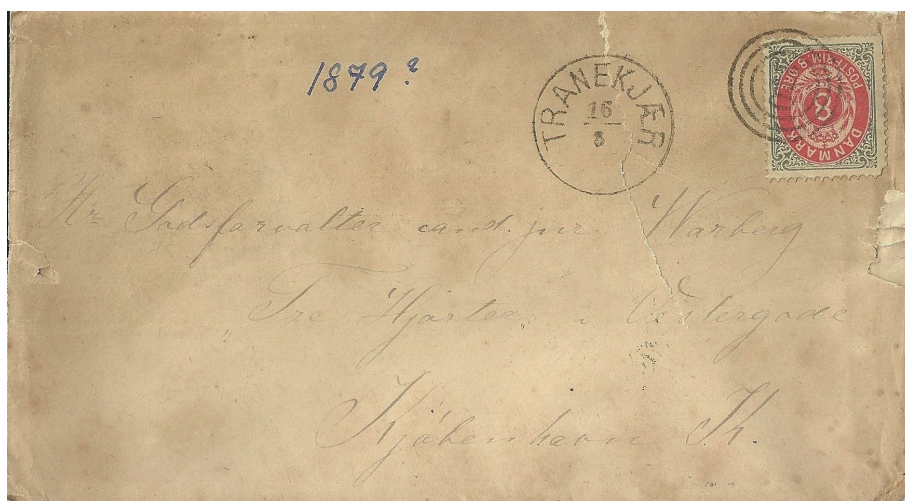 1879?
TRANEKJÆR
16
8
POSTFRIM. 8 ØRE
8
DANMARK
Hr Godsforvalter cand. jur. Warberg
"Tre Hjorter" Vestergade
Kjøbenhavn K.